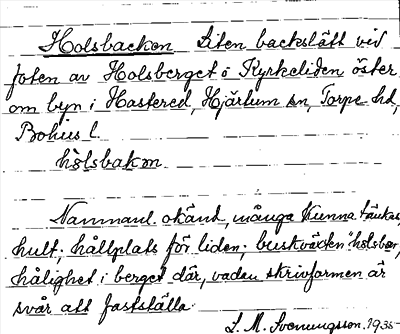 Holsbacken Liten backslätt vid
foten av Holsberget ö Kyrkeliden öster
om byn i Hastered, Hjärtum sn, Torpe hd,
Bohus l.
hòlsbakən
Namnanl. okänt, många kunna tänkas,
hult; hållplats för liden; buskväxten "holsbär",
hålighet i berget där, vadan skrivformen är
svår att fastställa
L. M. Svenungsson. 1935